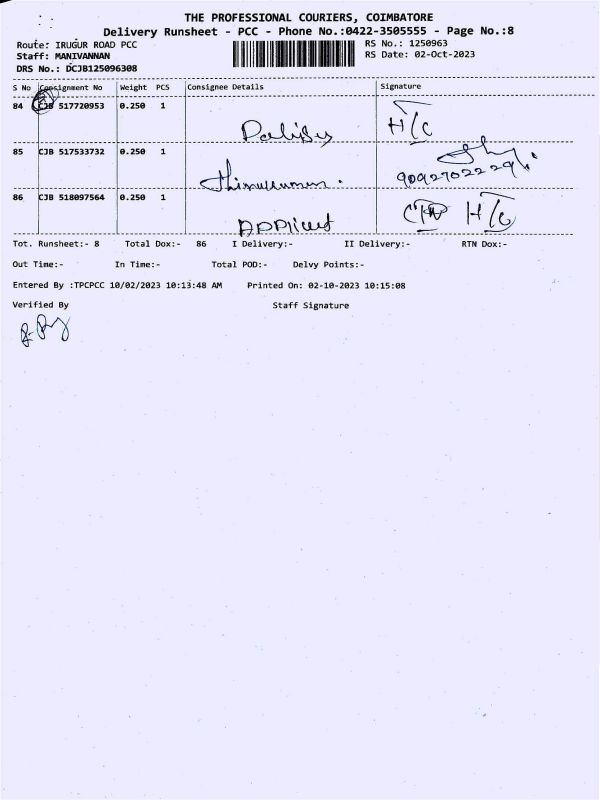 THE PROFESSIONAL COURIERS, COIMBATORE
Delivery Runsheet - PCC - Phone No.:0422-3505555 - Page No.:8
Route: IRUGUR ROAD PCC RS No.: 1250963
Staff: MANIVANNAN RS Date: 02-Oct-2023
DRS No.: DCJB125096308
S No Consignment No Weight PCS Consignee Details Signature
84 CJB 517720953 0.250 1
H/C
85 CJB 517533732 0.250 1
86 CJB 518097564 0.250 1
Tot. Runsheet:- 8 Total Dox:- 86 I Delivery:- II Delivery:- RTN Dox:-
Out Time:- In Time:- Total POD:- Delvy Points:-
Entered By :TPCPCC 10/02/2023 10:13:48 AM Printed On: 02-10-2023 10:15:08
Verified By Staff Signature